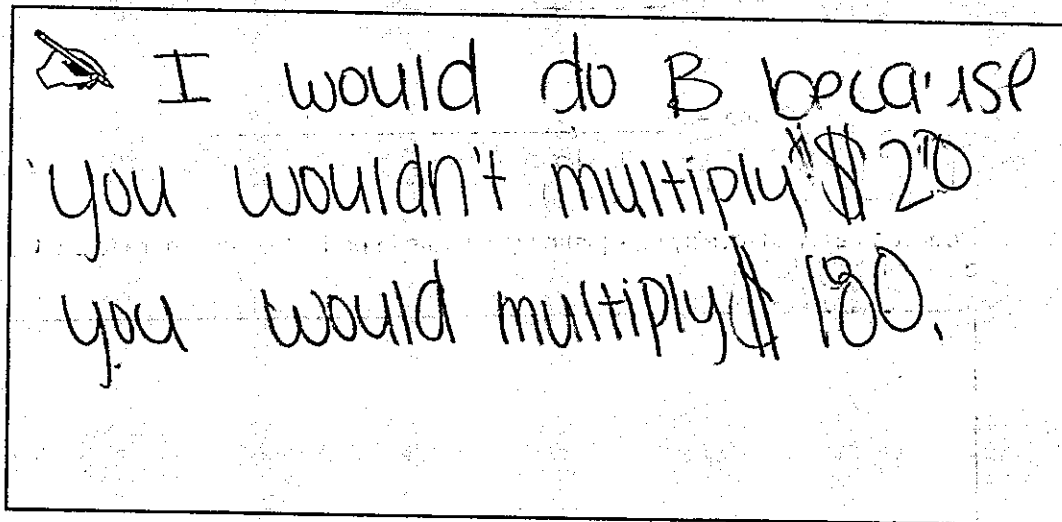 I would do B because
you wouldn't multiply "$20"
you would multiply $180.